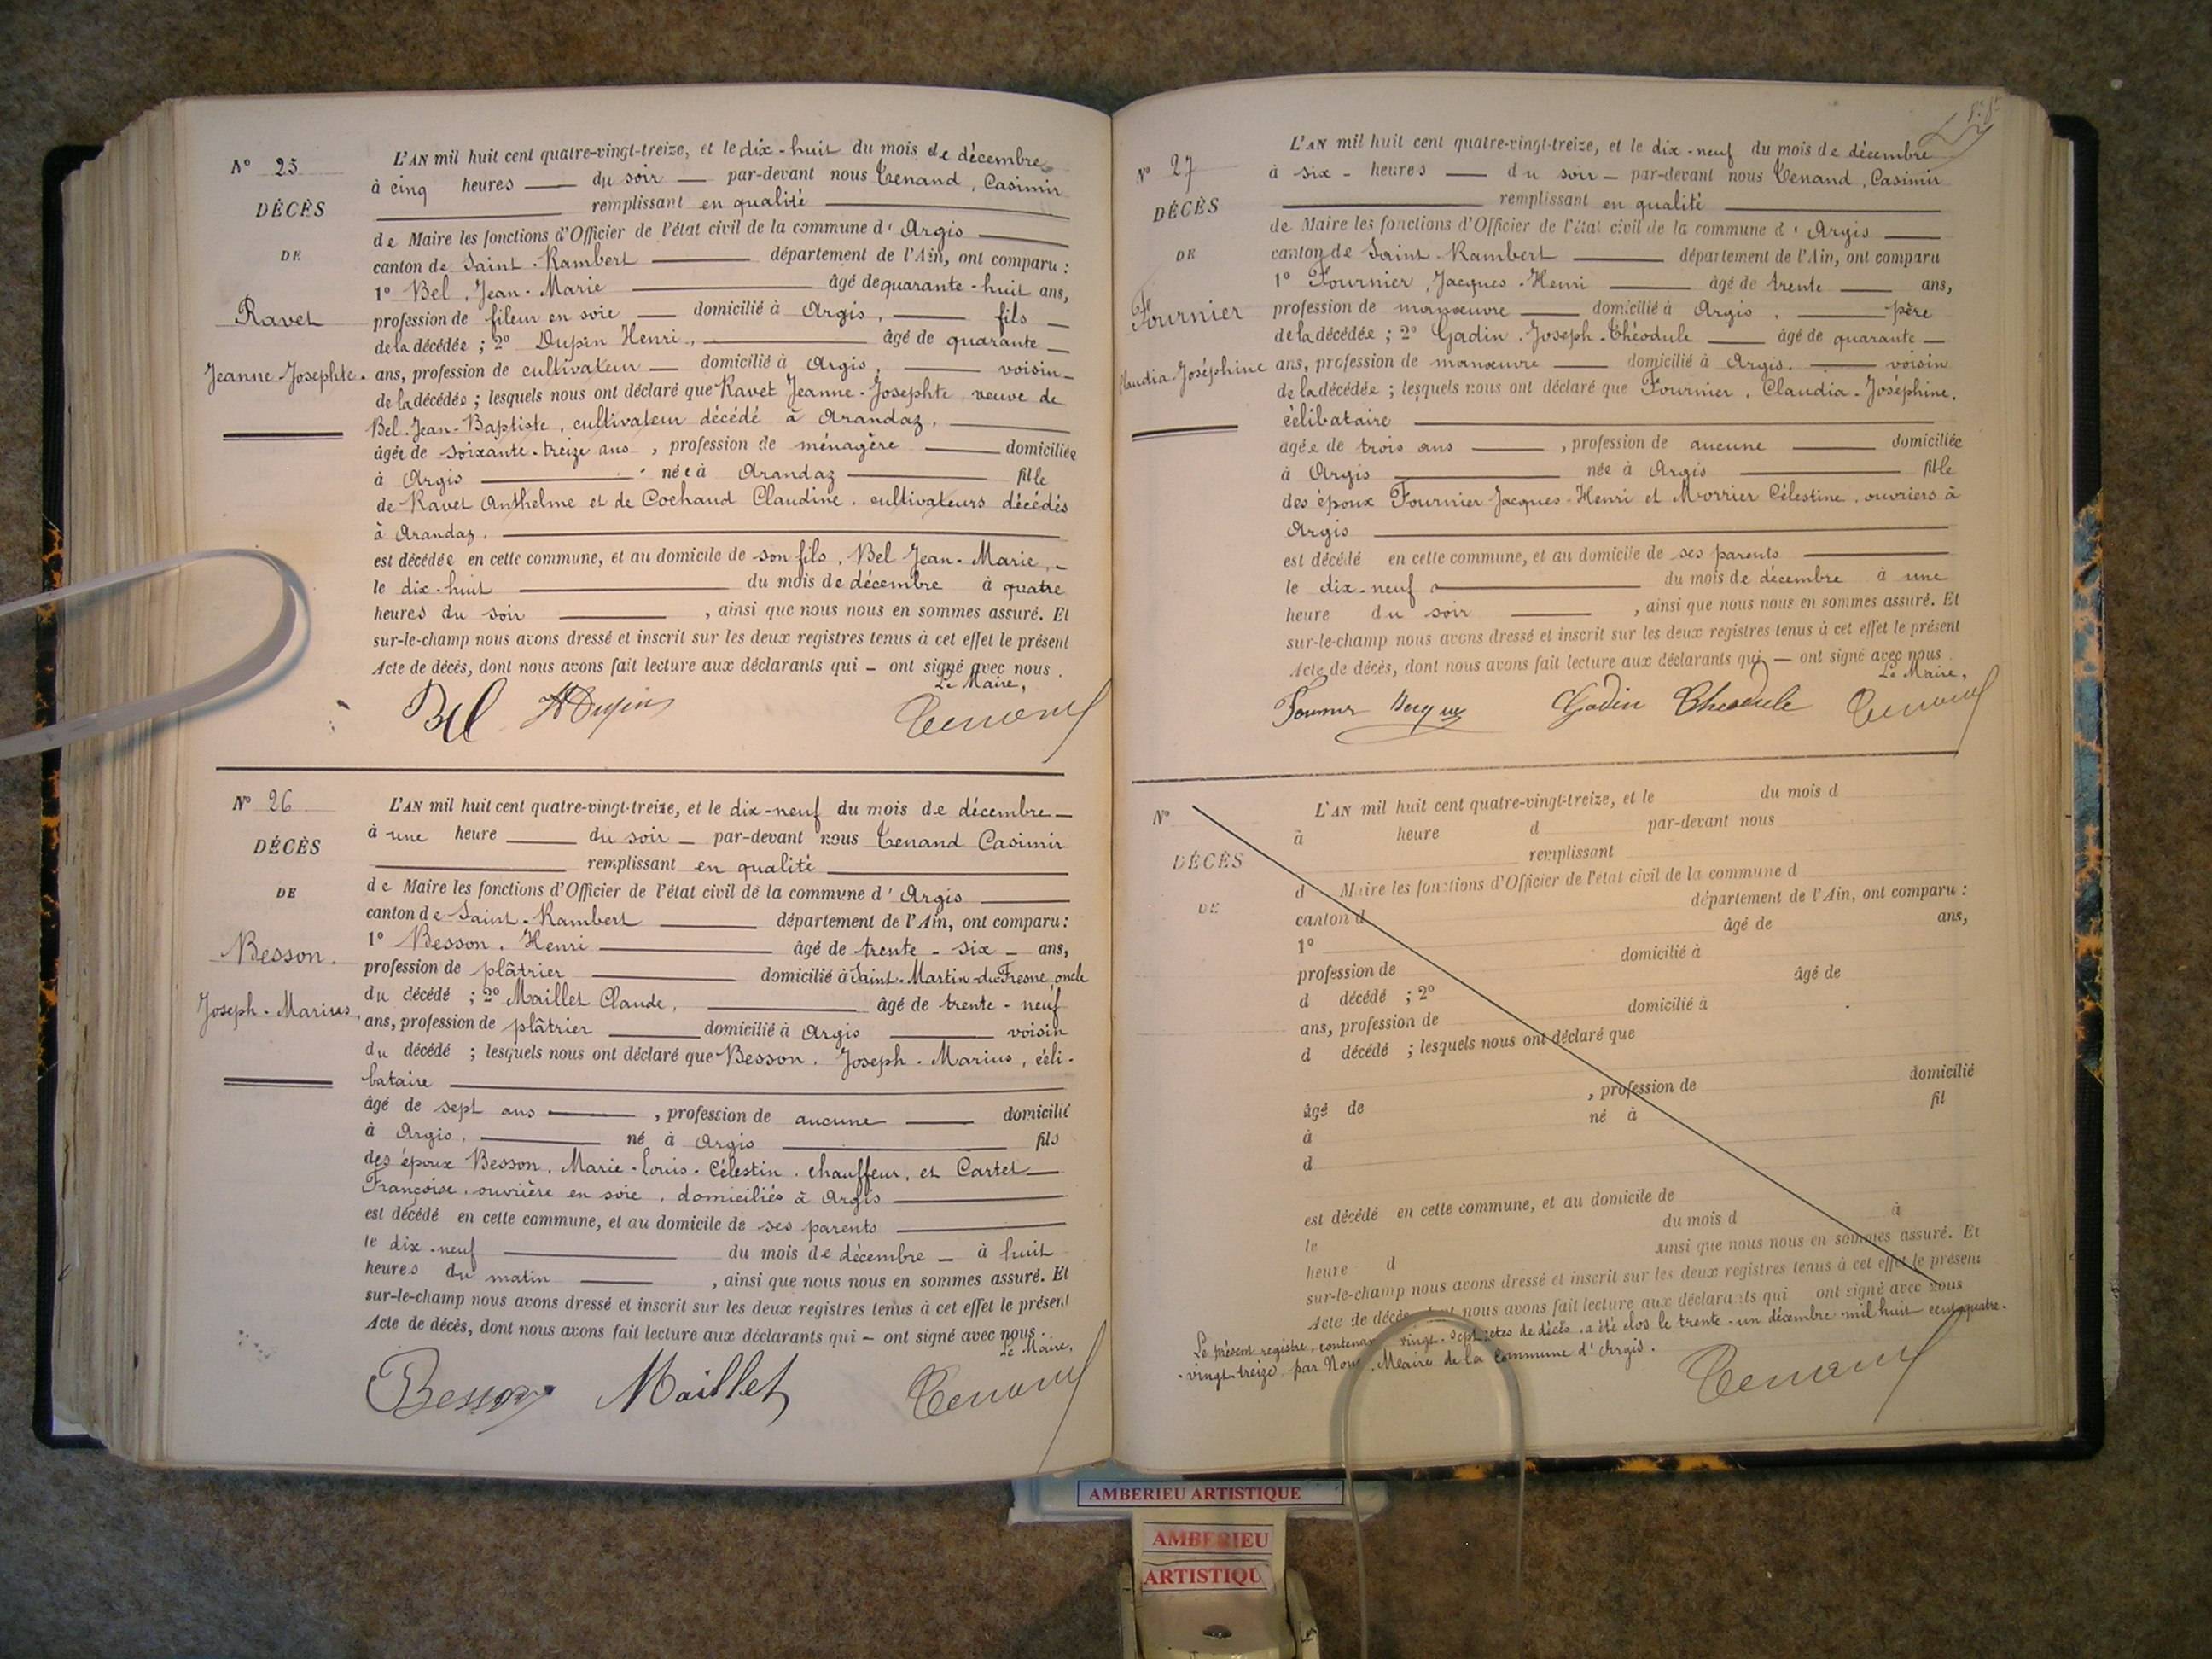 N° 25
DÉCÈS
DE
Ravet
Jeanne-Josephte.
L'AN mil huit cent quatre-vingt-treize, et le dix-huit du mois de décembre
à cinq heures du soir par-devant nous Tenand, Casimir
remplissant en qualité
de Maire les fonctions d'Officier de l'état civil de la commune d'Argis
canton de Saint-Rambert département de l'Ain, ont comparu :
1° Bel, Jean-Marie âgé de quarante-huit ans,
profession de fileur en soie domicilié à Argis, fils
de la décédée ; 2° Dupin Henri, âgé de quarante
ans, profession de cultivateur domicilié à Argis, voisin
de la décédée ; lesquels nous ont déclaré que Ravet Jeanne-Josephte, veuve de
Bel Jean-Baptiste, cultivateur décédé à Arandaz,
âgée de soixante-treize ans, profession de ménagère domiciliée
à Argis née à Arandaz fille
de Ravet Anthelme et de Cochaud Claudine, cultivateurs décédés
à Arandaz.
est décédée en cette commune, et au domicile de son fils, Bel Jean-Marie,
le dix-huit du mois de décembre à quatre
heures du soir, ainsi que nous nous en sommes assuré. Et
sur-le-champ nous avons dressé et inscrit sur les deux registres tenus à cet effet le présent
Acte de décès, dont nous avons fait lecture aux déclarants qui – ont signé avec nous.
Le Maire,
Bel HDupin Tenand
N° 26
DÉCÈS
DE
Besson.
Joseph-Marius,
L'AN mil huit cent quatre-vingt-treize, et le dix-neuf du mois de décembre
à une heure du soir par-devant nous Tenand Casimir
remplissant en qualité
de Maire les fonctions d'Officier de l'état civil de la commune d'Argis
canton de Saint-Rambert département de l'Ain, ont comparu :
1° Besson, Henri âgé de trente-six ans,
profession de plâtrier domicilié à Saint-Martin-du-Fresne, oncle
du décédé ; 2° Maillet Claude, âgé de trente-neuf
ans, profession de plâtrier domicilié à Argis voisin
du décédé ; lesquels nous ont déclaré que Besson, Joseph-Marius, céli-
bataire
âgé de sept ans, profession de aucune domicilié
à Argis, né à Argis fils
des époux Besson, Marie-Louis-Célestin, chauffeur, et Cartet
Françoise, ouvrière en soie, domiciliés à Argis
est décédé en cette commune, et au domicile de ses parents
le dix-neuf du mois de décembre à huit
heures du matin, ainsi que nous nous en sommes assuré. Et
sur-le-champ nous avons dressé et inscrit sur les deux registres tenus à cet effet le présent
Acte de décès, dont nous avons fait lecture aux déclarants qui – ont signé avec nous.
Le Maire,
Besson Maillet Tenand
N° 27
DÉCÈS
DE
Fournier
Claudia-Joséphine
L'AN mil huit cent quatre-vingt-treize, et le dix-neuf du mois de décembre
à six heures du soir par-devant nous Tenand, Casimir
remplissant en qualité
de Maire les fonctions d'Officier de l'état civil de la commune d'Argis
canton de Saint-Rambert département de l'Ain, ont comparu
1° Fournier, Jacques-Henri âgé de trente ans,
profession de manœuvre domicilié à Argis, père
de la décédée ; 2° Gadin, Joseph-Théodule âgé de quarante
ans, profession de manœuvre domicilié à Argis, voisin
de la décédée ; lesquels nous ont déclaré que Fournier, Claudia-Joséphine,
célibataire
âgée de trois ans, profession de aucune domiciliée
à Argis née à Argis fille
des époux Fournier Jacques-Henri et Morrier Célestine, ouvriers à
Argis
est décédé en cette commune, et au domicile de ses parents
le dix-neuf du mois de décembre à une
heure du soir, ainsi que nous nous en sommes assuré. Et
sur-le-champ nous avons dressé et inscrit sur les deux registres tenus à cet effet le présent
Acte de décès, dont nous avons fait lecture aux déclarants qui – ont signé avec nous
Le Maire,
Gadin Théodule Tenand
N°
DÉCÈS
DE
L'AN mil huit cent quatre-vingt-treize, et le du mois d
à heure d par-devant nous
remplissant
d Maire les fonctions d'Officier de l'état civil de la commune d
canton d département de l'Ain, ont comparu :
1° âgé de ans,
profession de domicilié à
d décédé ; 2° âgé de
ans, profession de domicilié à
d décédé ; lesquels nous ont déclaré que
âgé de , profession de domicilié
à né à fil
d
est décédé en cette commune, et au domicile de
le du mois d à
heure d ainsi que nous nous en sommes assuré. Et
sur-le-champ nous avons dressé et inscrit sur les deux registres tenus à cet effet le présent
Acte de décès, dont nous avons fait lecture aux déclarants qui ont signé avec nous
Le présent registre, contenant vingt-sept actes de décès, a été clos le trente-un décembre mil huit cent quatre-
vingt-treize par Nous, Maire de la Commune d'Argis.
Tenand
AMBERIEU ARTISTIQUE
AMBERIEU
ARTISTIQU